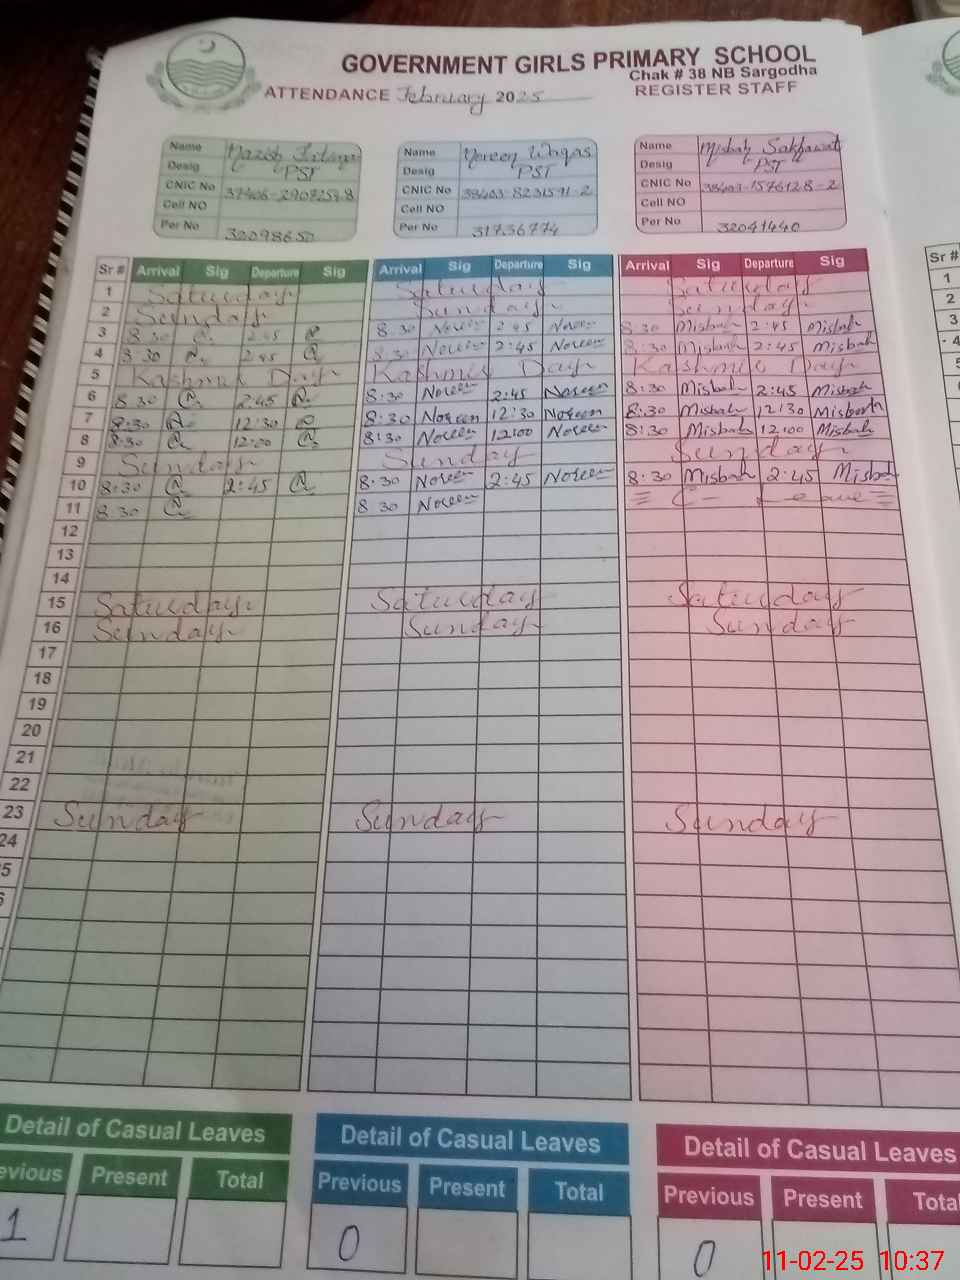 GOVERNMENT GIRLS PRIMARY SCHOOL
Chak # 38 NB Sargodha
ATTENDANCE February 2025 REGISTER STAFF
Name Name Noreen Waqas Name Misbah Sakhawat
Desig PST Desig PST Desig PST
CNIC No CNIC No 38403-8231591-2 CNIC No 38403-1576128-2
Cell NO Cell NO Cell NO
Per No 32098650 Per No 31736774 Per No 32041440
Sr # Arrival Sig Departure Sig Arrival Sig Departure Sig Arrival Sig Departure Sig Sr #
1 Saturday Saturday Saturday 1
2 Sunday Sunday Sunday 2
3 8:30 2:45 8:30 Noreen 2:45 Noreen 8:30 Misbah 2:45 Misbah 3
4 8:30 2:45 8:30 Noreen 2:45 Noreen 8:30 Misbah 2:45 Misbah 4
5 Kashmir Day Kashmir Day Kashmir Day 5
6 8:30 2:45 8:30 Noreen 2:45 Noreen 8:30 Misbah 2:45 Misbah
7 8:30 12:30 8:30 Noreen 12:30 Noreen 8:30 Misbah 12:30 Misbah
8 8:30 12:00 8:30 Noreen 12:00 Noreen 8:30 Misbah 12:00 Misbah
9 Sunday Sunday Sunday
10 8:30 2:45 8:30 Noreen 2:45 Noreen 8:30 Misbah 2:45 Misbah
11 8:30 8:30 Noreen C- Leave
12
13
14
15 Saturday Saturday Saturday
16 Sunday Sunday Sunday
17
18
19
20
21
22
23 Sunday Sunday Sunday
24
5
Detail of Casual Leaves Detail of Casual Leaves Detail of Casual Leaves
evious Present Total Previous Present Total Previous Present Tota
1 0 0
11-02-25 10:37